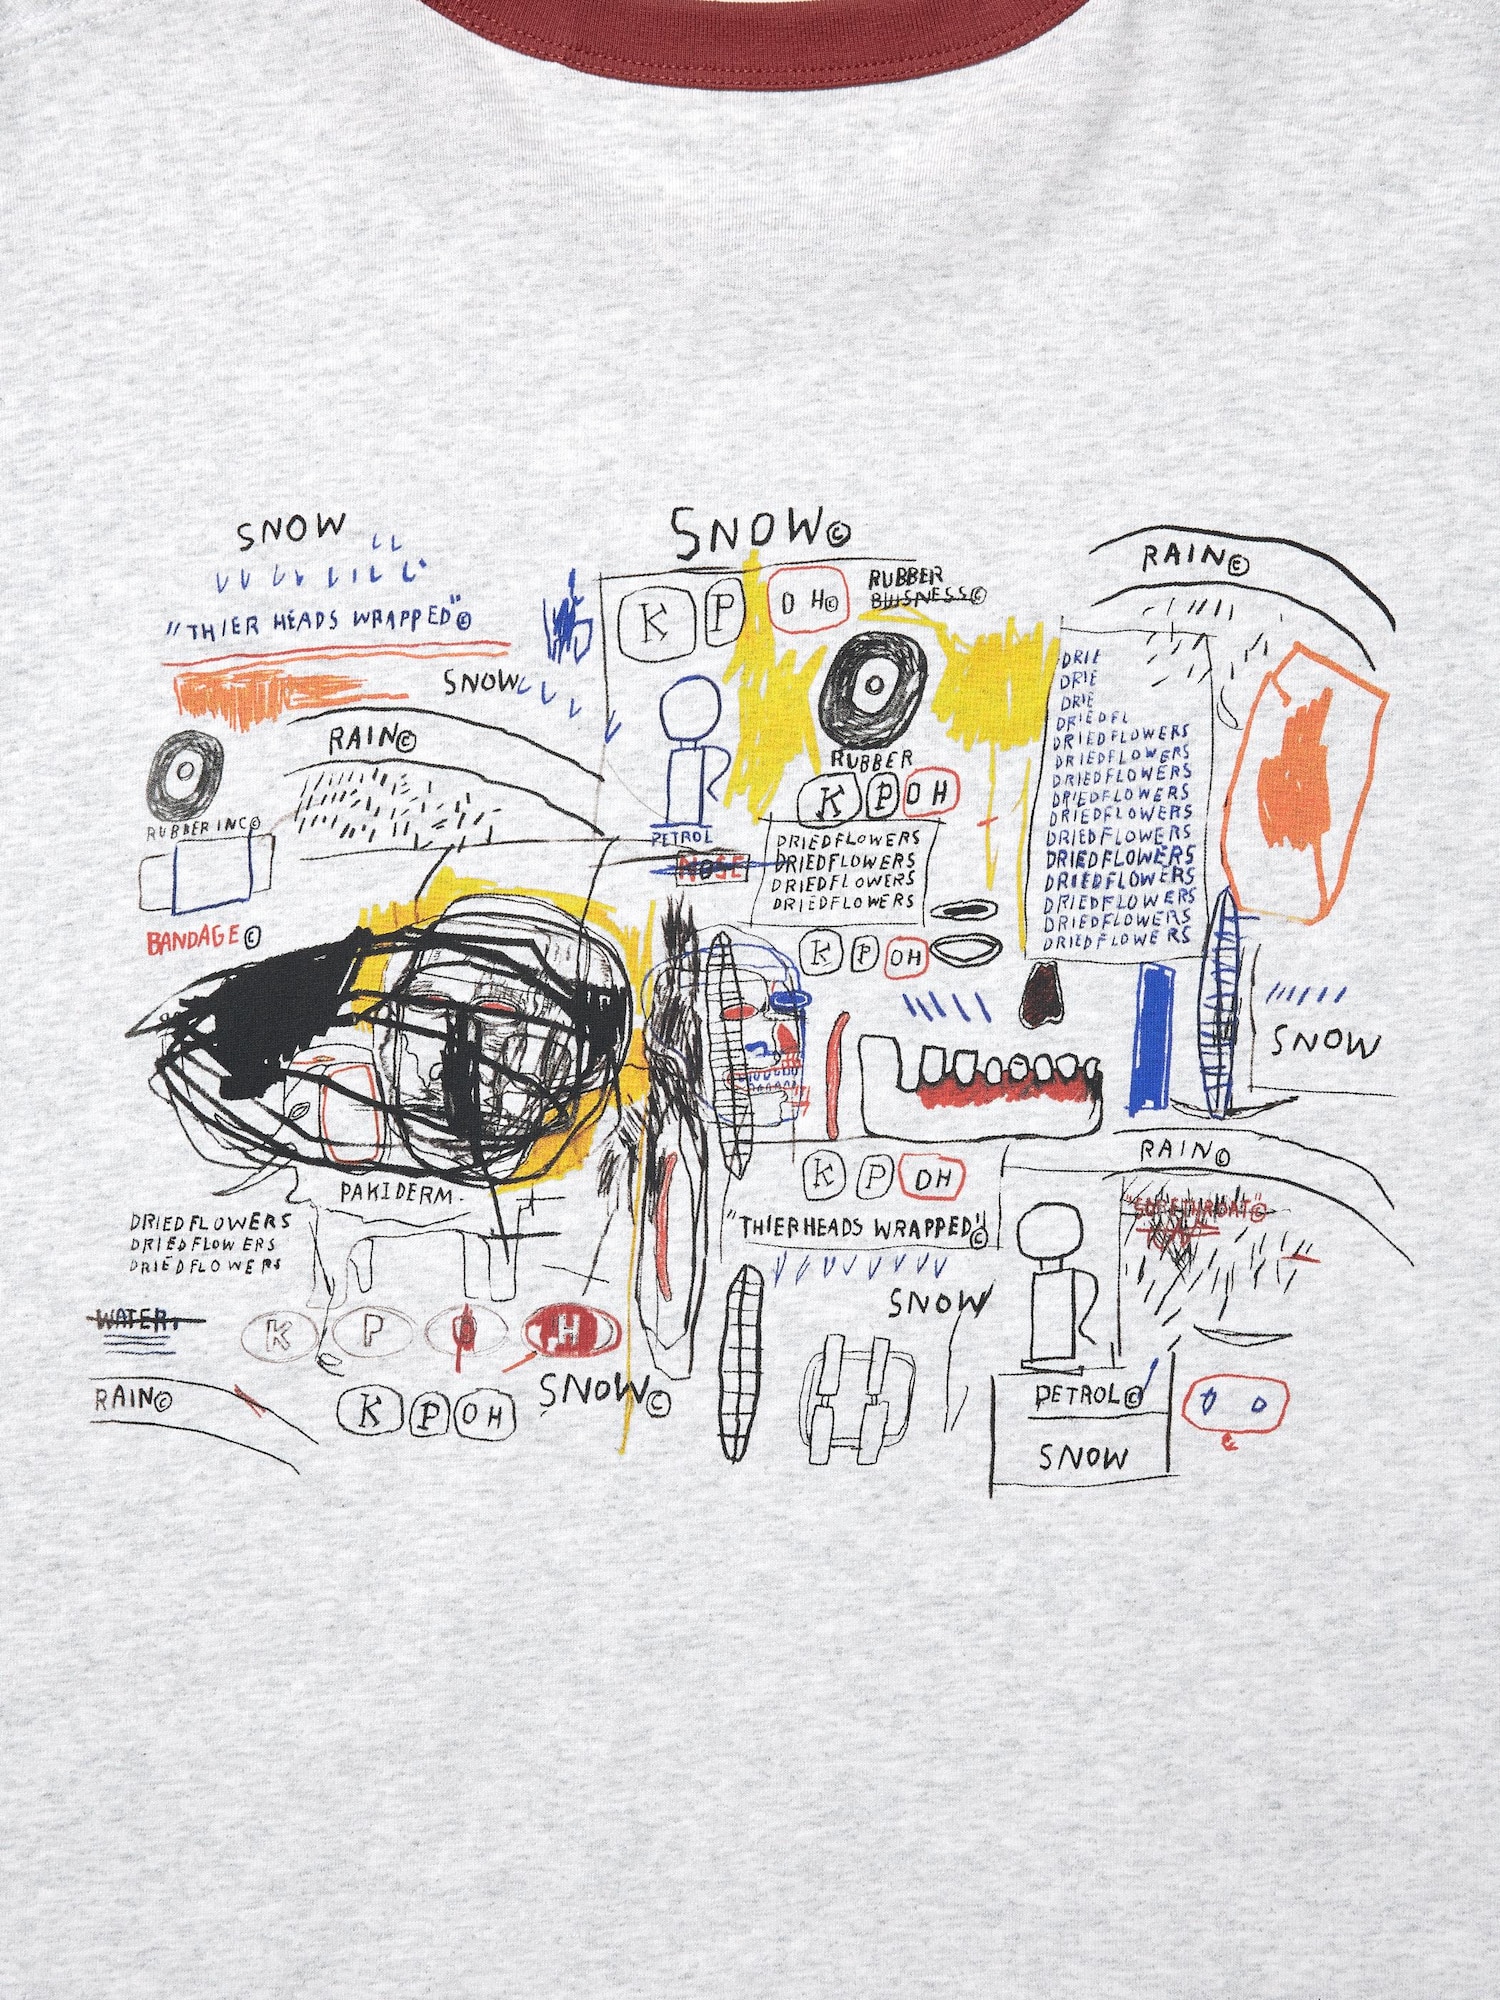 SNOW
"THIER HEADS WRAPPED"©
SNOW
RAIN©
RUBBER INC©
BANDAGE©
SNOW©
K P O H©
RUBBER
BUISNESS©
PETROL
NOSE
RUBBER
K P O H
DRIEDFLOWERS
DRIEDFLOWERS
DRIEDFLOWERS
DRIEDFLOWERS
K P OH
RAIN©
DRIE
DRIE
DRIE
DRIEDFL
DRIEDFLOWERS
DRIEDFLOWERS
DRIEDFLOWERS
DRIEDFLOWERS
DRIEDFLOWERS
DRIEDFLOWERS
DRIEDFLOWERS
DRIEDFLOWERS
DRIEDFLOWERS
DRIEDFLOWERS
DRIEDFLOWERS
SNOW
PAKIDERM.
DRIEDFLOWERS
DRIEDFLOWERS
DRIEDFLOWERS
WATER.
K P O H
RAIN©
K P O H
SNOW©
K P OH
"THIERHEADS WRAPPED"©
SNOW
RAIN©
"SORETHROAT"©
PETROL©
SNOW